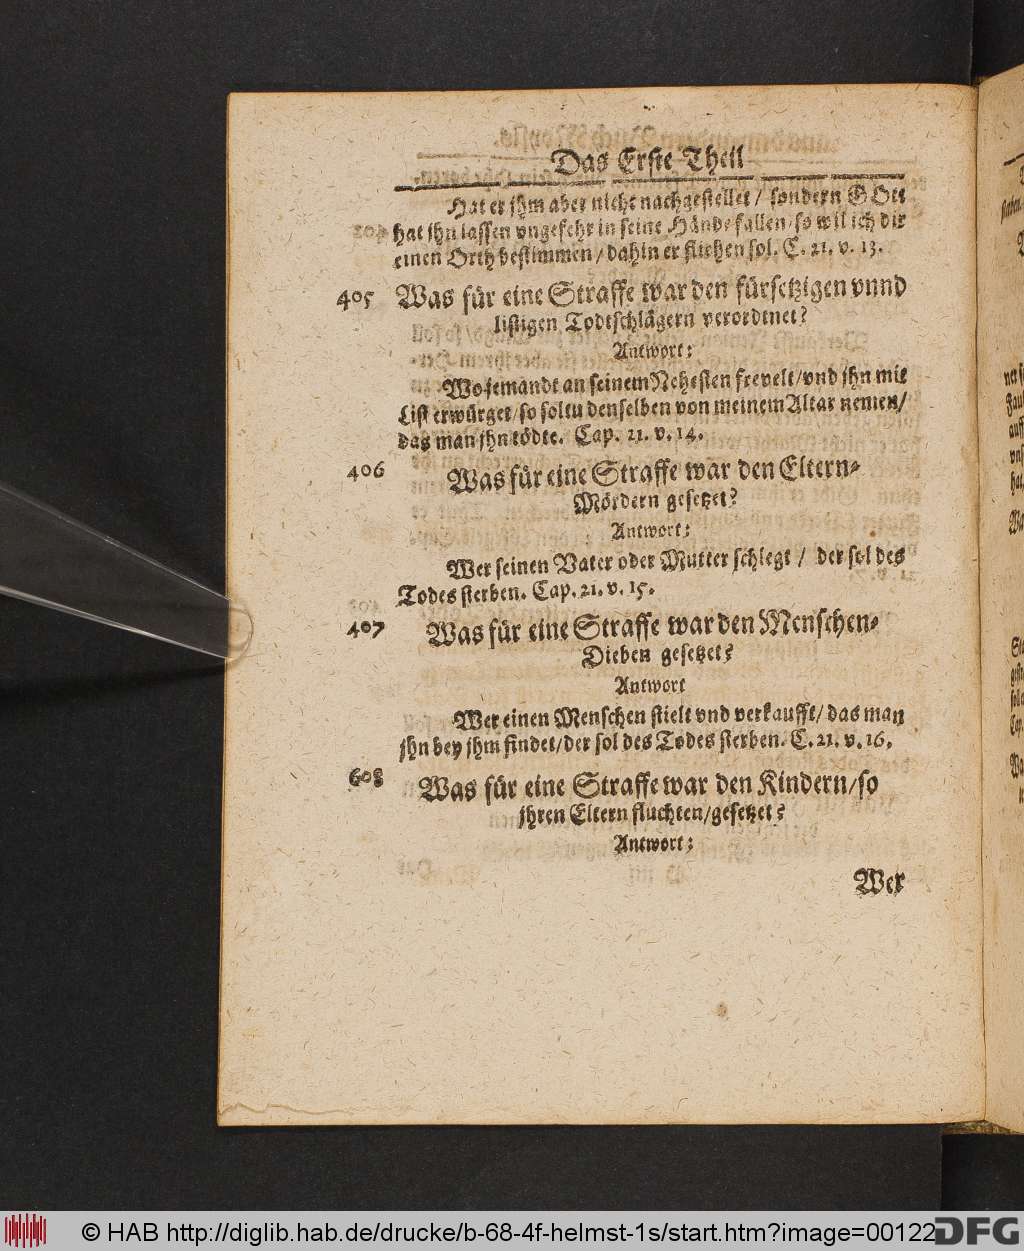 Das Erste Theil
Hat er jhm aber nicht nachgestellet / sondern GOtt
hat jhn lassen vngefehr in seine Hände fallen / so wil ich dir
einen Orth bestimmen / dahin er fliehen sol. C. 21. v. 13.
405 Was für eine Straffe war den fürsetzigen vnnd
listigen Todtschlägern verordtnet?
Antwort:
Wo jemandt an seinem Nehesten frevelt / vnd jhn mit
List erwürget / so soltu denselben von meinem Altar nemen /
das man jhn tödte. Cap. 21. v. 14.
406 Was für eine Straffe war den Eltern-
Mördern gesetzet?
Antwort:
Wer seinen Vater oder Mutter schlegt / der sol des
Todes sterben. Cap. 21. v. 15.
407 Was für eine Straffe war den Menschen-
Dieben gesetzet?
Antwort
Wer einen Menschen stielt vnd verkaufft / das man
jhn bey jhm findet / der sol des Todes sterben. C. 21. v. 16.
608 Was für eine Straffe war den Kindern / so
jhren Eltern fluchten / gesetzet?
Antwort:
Wer
© HAB http://diglib.hab.de/drucke/b-68-4f-helmst-1s/start.htm?image=00122
DFG